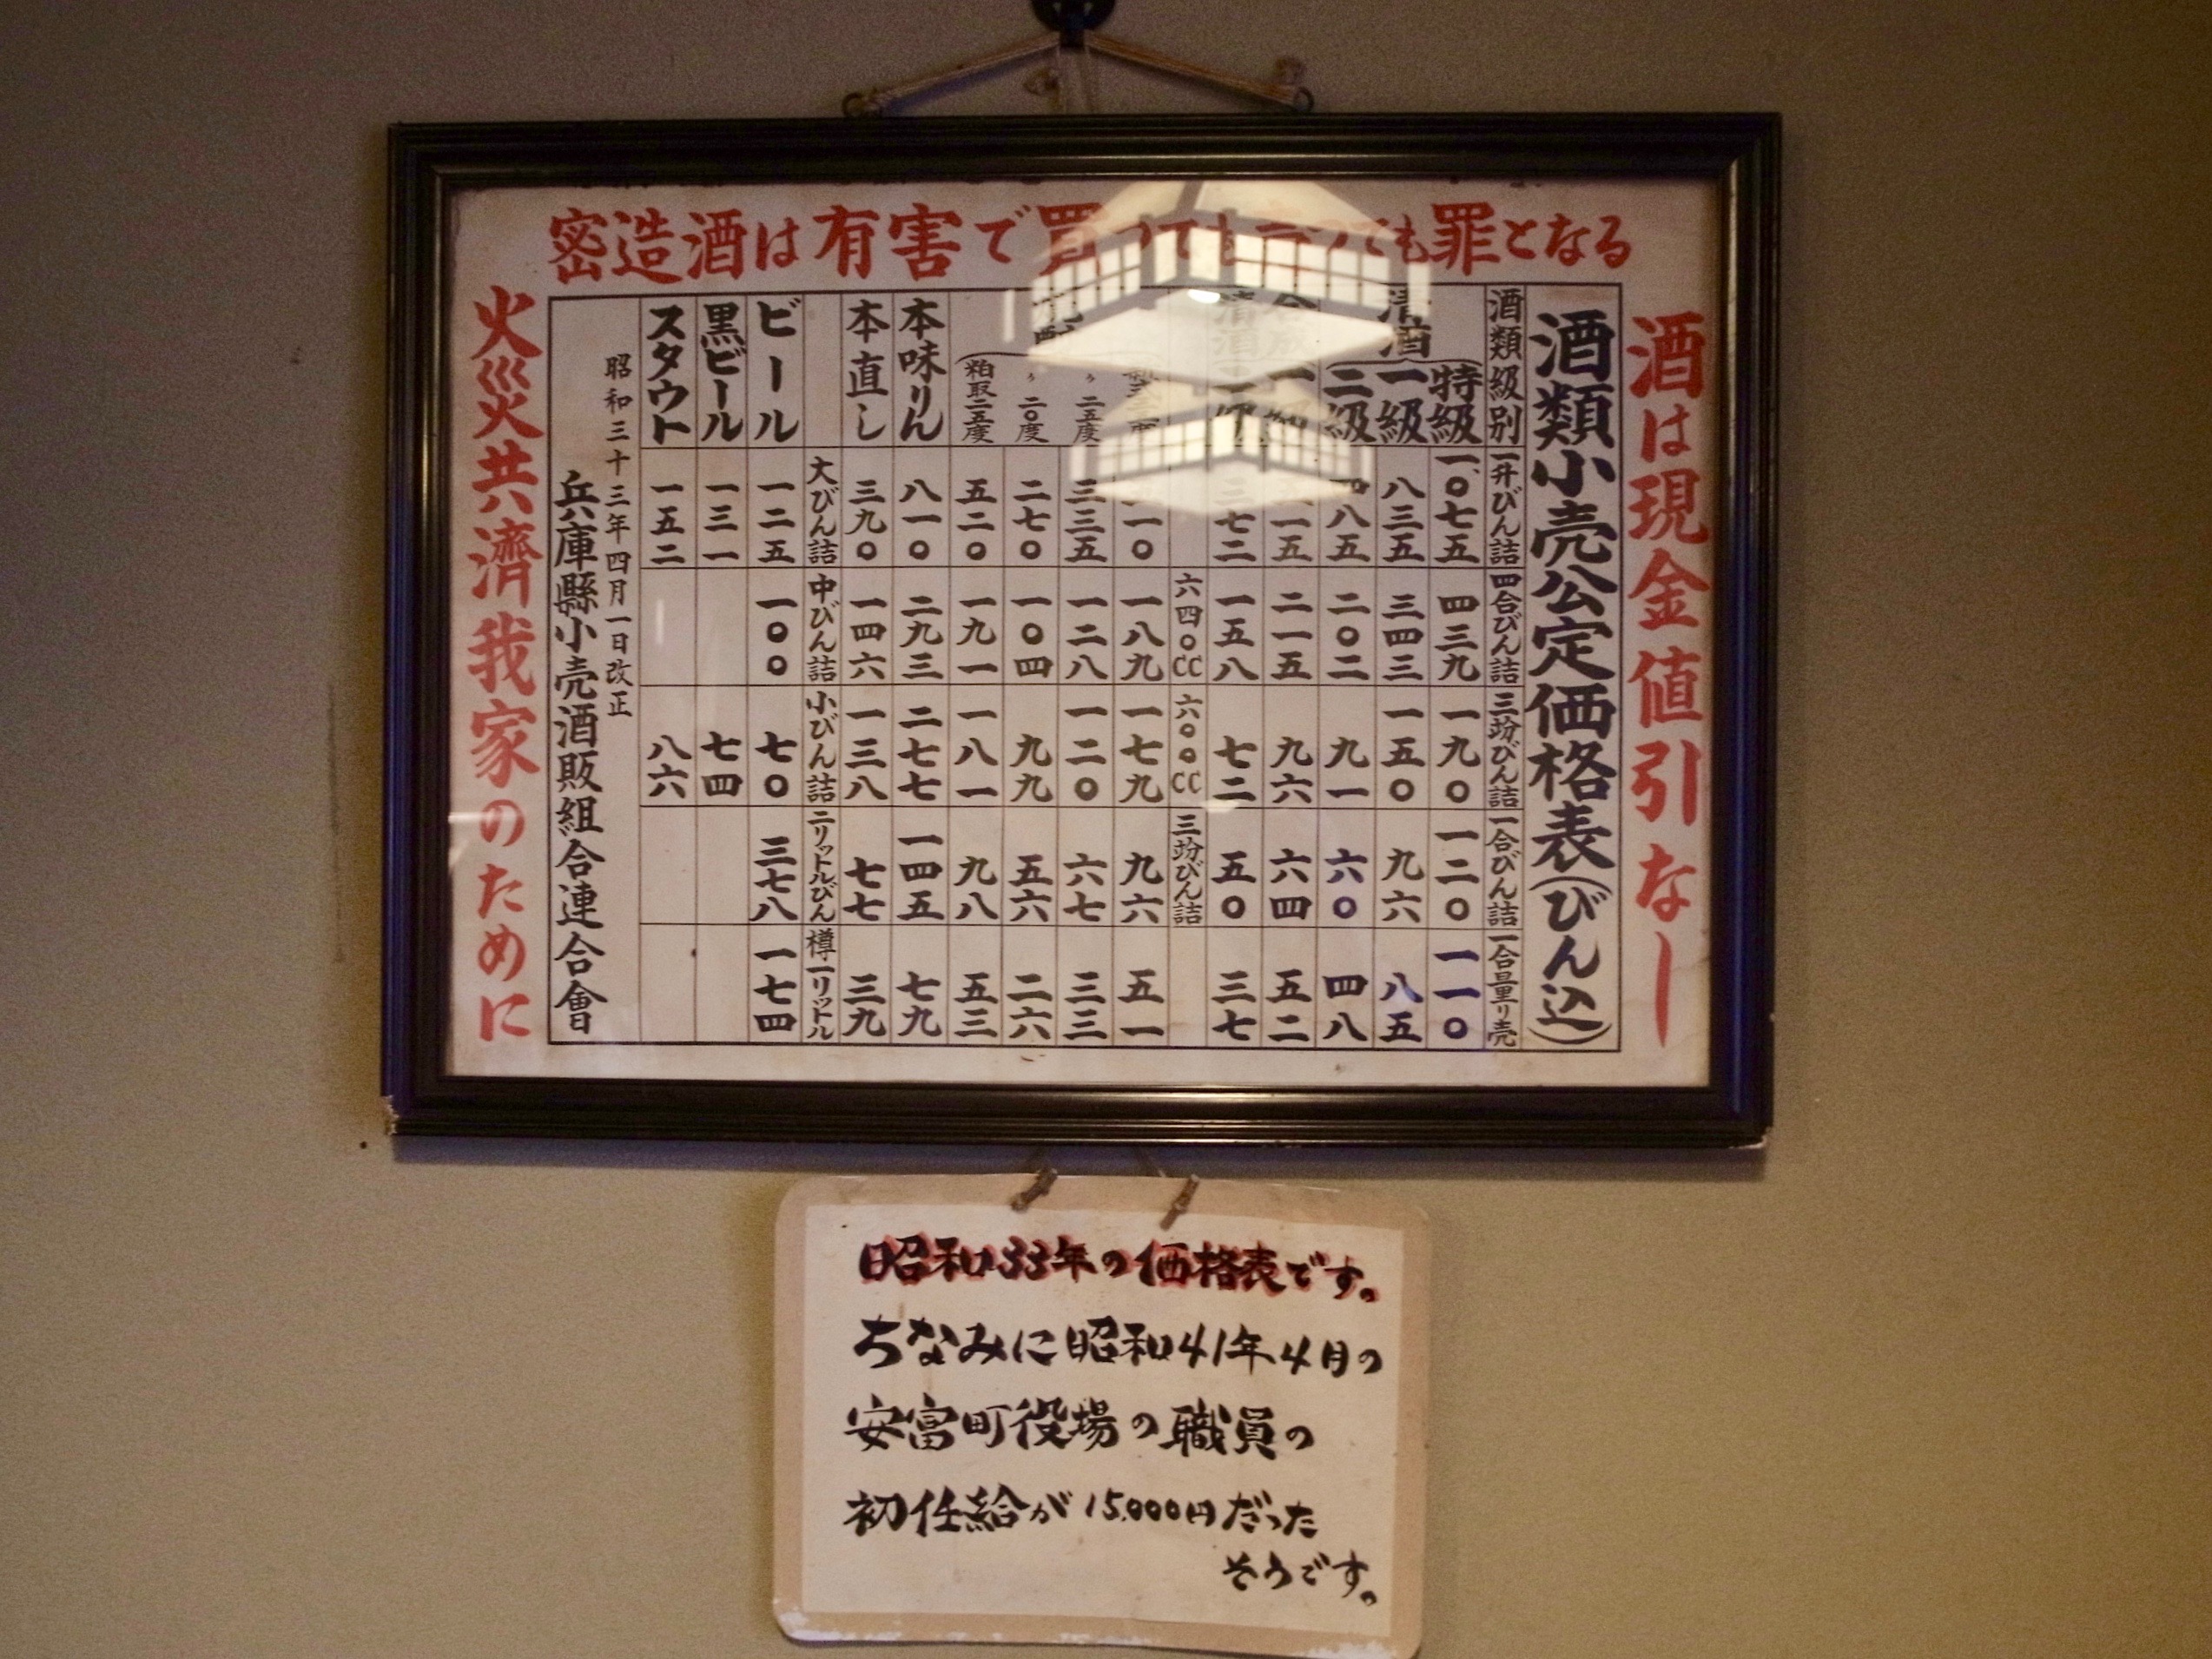 密造酒は有害で買っても売っても罪となる
酒は現金値引なし
酒類小売公定価格表(びん込)
酒類級別 一升びん詰 四合びん詰 三竕びん詰 一合びん詰 一合量り売
清酒
特級 一、〇七五 四三九 一九〇 一二〇 一一〇
一級 八三五 三四三 一五〇 九六 八五
二級 四八五 二〇二 九一 六〇 四八
一五 二一五 九六 六四 五二
清酒二級 三七二 一五八 七二 五〇 三七
六四〇CC 六〇〇CC 三竕びん詰
一〇 一八九 一七九 九六 五一
〃 二五度 三三五 一二八 一二〇 六七 三三
〃 二〇度 二七〇 一〇四 九九 五六 二六
粕取二五度 五二〇 一九一 一八一 九八 五三
本味りん 八一〇 二九三 二七七 一四五 七九
本直し 三九〇 一四六 一三八 七七 三九
大びん詰 中びん詰 小びん詰 二リットルびん 樽一リットル
ビール 一二五 一〇〇 七〇 三七八 一七四
黒ビール 一三一 七四
スタウト 一五二 八六
昭和三十三年四月一日改正
兵庫縣小売酒販組合連合會
火災火共濟我家のために
昭和33年の価格表です。
ちなみに昭和41年4月の
安富町役場の職員の
初任給が15,000円だった
そうです。